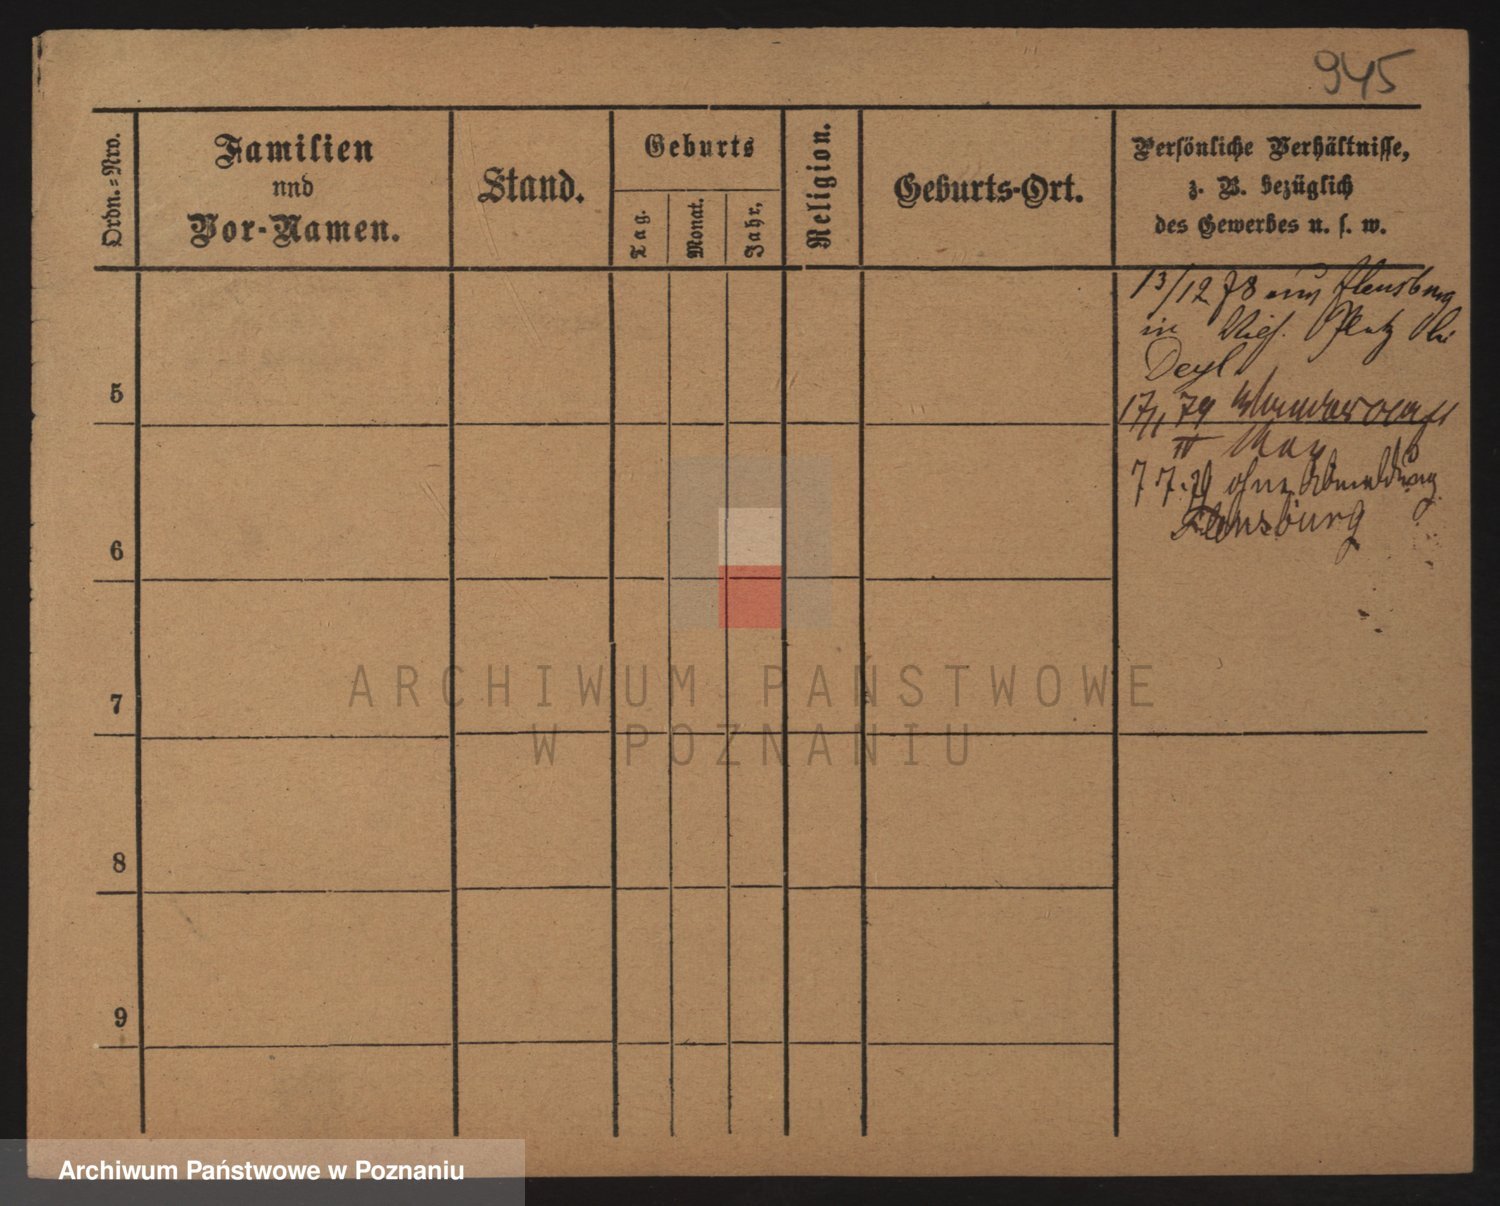 945
Ordn.=Nro.
Familien
nnd
Vor-Namen.
Stand.
Geburts
Tag.
Monat.
Jahr,
Religion.
Geburts-Ort.
Persönliche Verhältnisse,
z. B. bezüglich
des Gewerbes u. s. w.
13/12 78 aus Flensburg
in
Deyl.
17/1 79
7 7. 79 ohne Abmeldung
Flensburg
5
6
7
8
9
ARCHIWUM PAŃSTWOWE
W POZNANIU
Archiwum Państwowe w Poznaniu